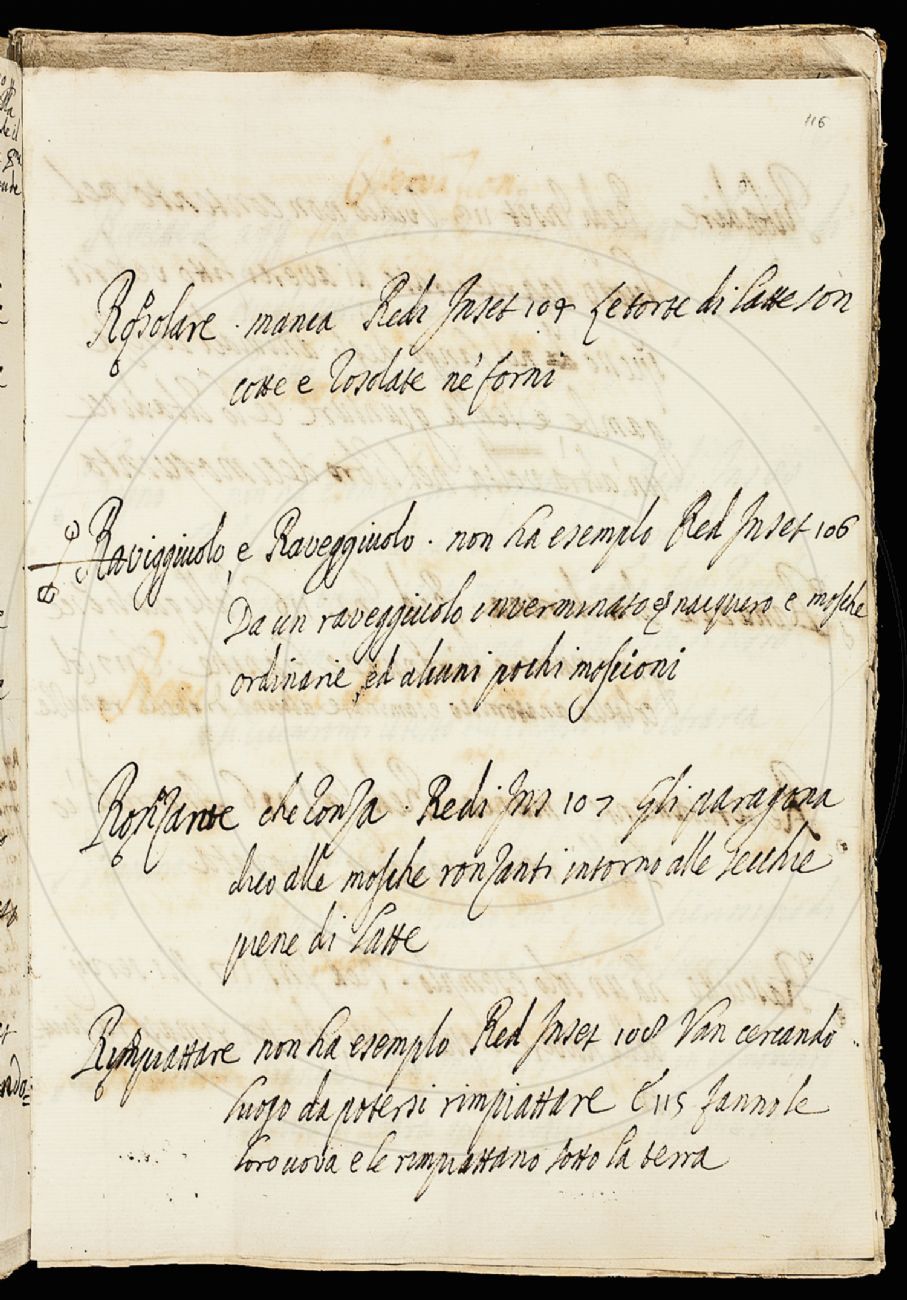 116
Rosolare . manca Redi Inset 104 Le torte di latte son
cotte e rosolate ne' forni
Raviggiuolo, e Raveggiuolo . non ha esemplo Red Inset 106
Da un raveggiuolo inverminato nacquero e mosche
ordinarie, ed alcuni pochi moscioni
Ronzante che ronza . Redi Ins 107 Gli paragona
dico alle mosche ronzanti intorno alle secchie
piene di latte
Rimpiattare non ha esemplo Red Inset 108 Van cercando
luogo da potersi rimpiattare E 115 fanno le
loro uova e le rimpiattano sotto la terra